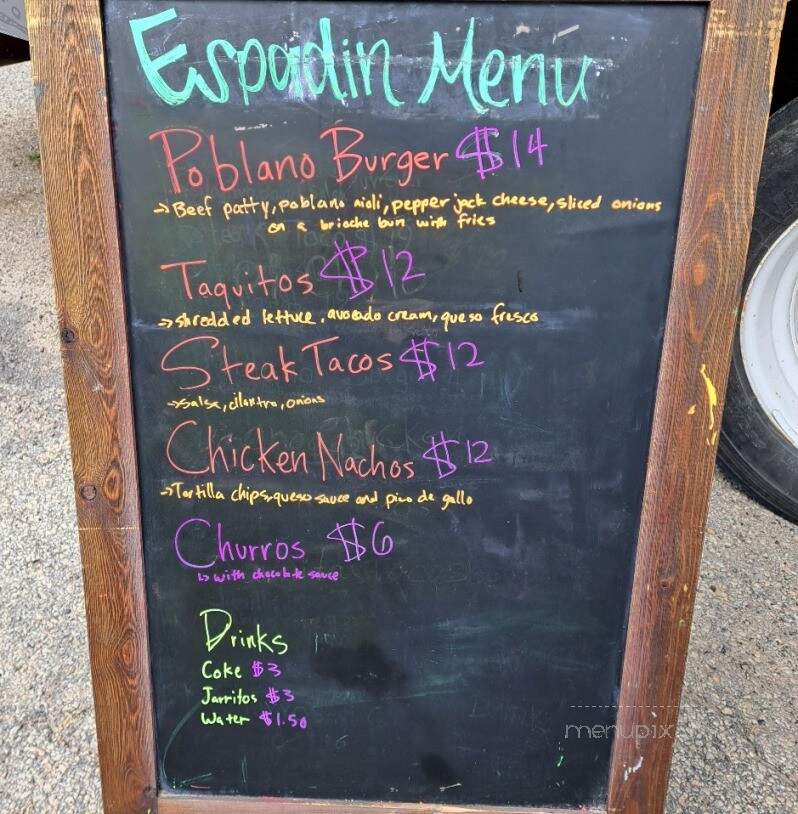 Espadin Menu
Poblano Burger $14
→Beef patty, poblano aioli, pepper jack cheese, sliced onions
on a brioche bun with fries
Taquitos $12
→shredded lettuce, avocado cream, queso fresco
Steak Tacos $12
→salsa, cilantro, onions
Chicken Nachos $12
→Tortilla chips, queso sauce and pico de gallo
Churros $6
↳with chocolate sauce
Drinks
Coke $3
Jarritos $3
Water $1.50
menupix